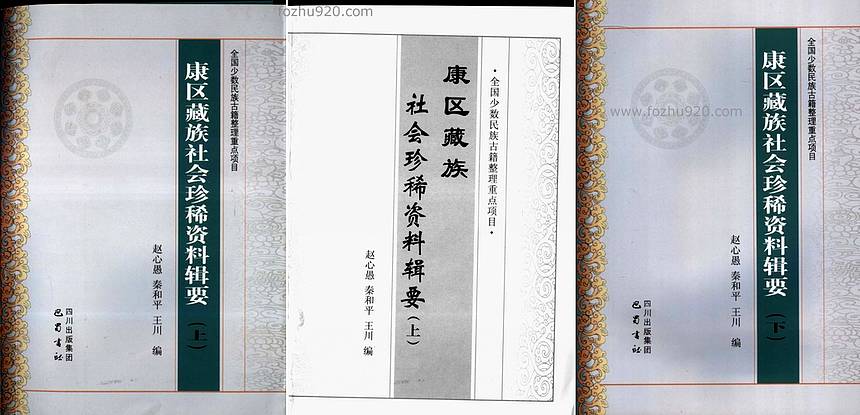 全国少数民族古籍整理重点项目
康区藏族社会珍稀资料辑要（上）
赵心愚 秦和平 王川 编
四川出版集团
巴蜀书社
fozhu920.com
·全国少数民族古籍整理重点项目·
康区藏族
社会珍稀资料辑要（上）
赵心愚 秦和平 王川 编
全国少数民族古籍整理重点项目
康区藏族社会珍稀资料辑要（下）
www.fozhu920.com
赵心愚 秦和平 王川 编
四川出版集团
巴蜀书社